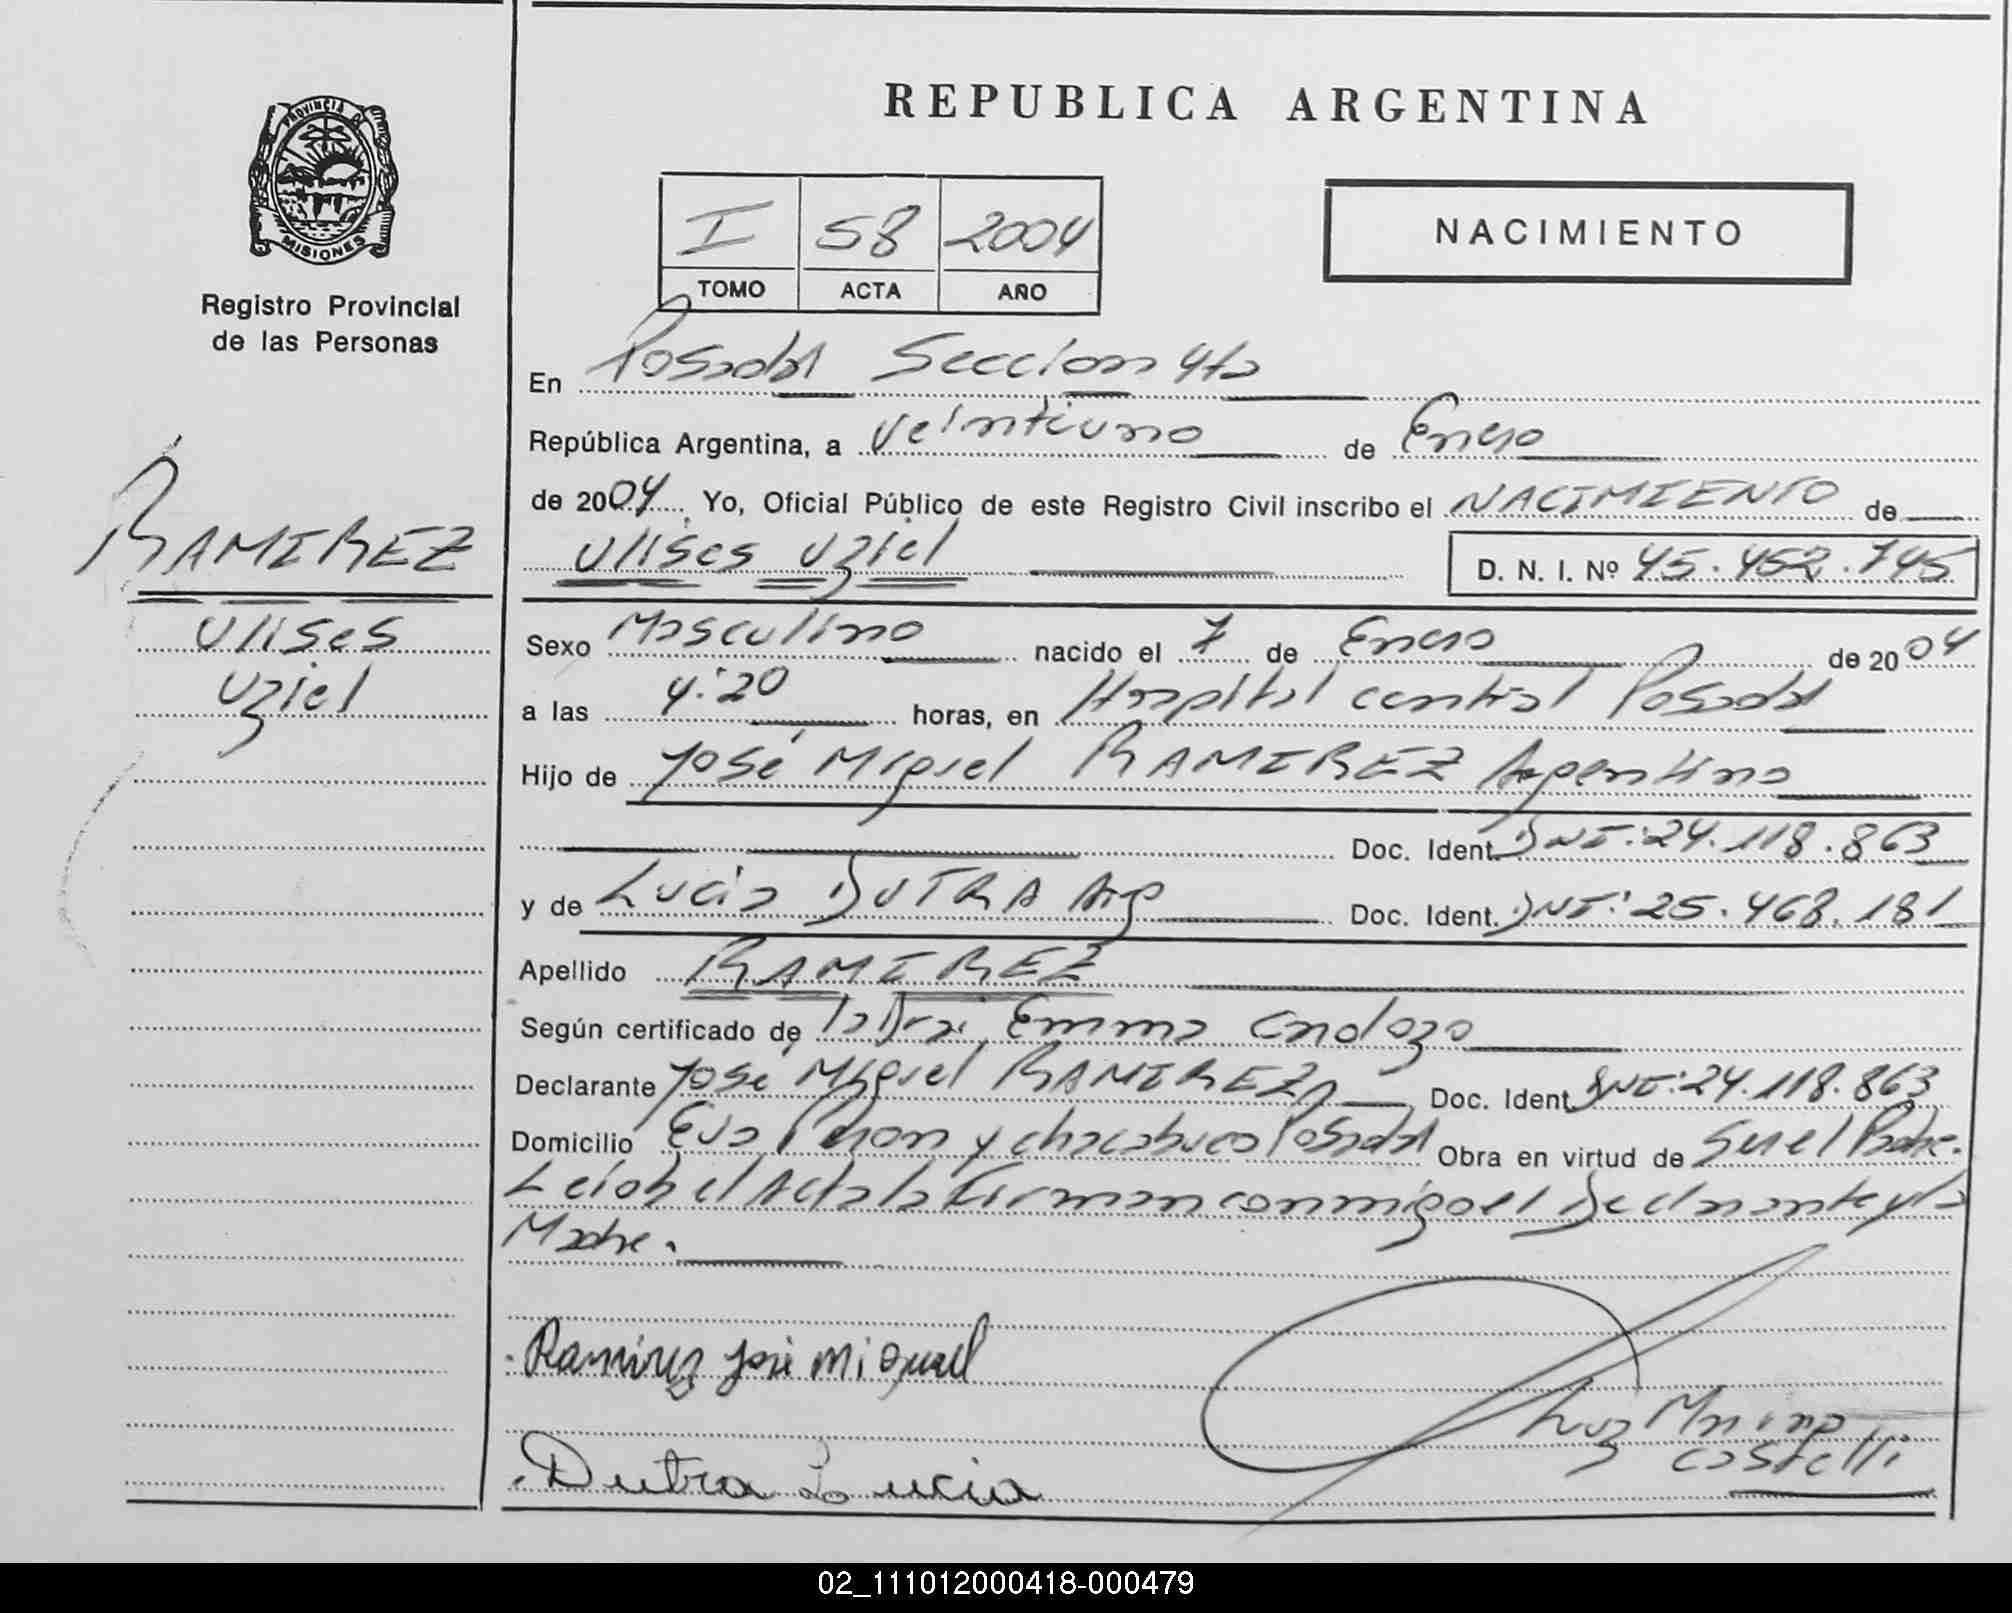 REPUBLICA ARGENTINA
PROVINCIA DE
MISIONES
Registro Provincial
de las Personas
I 58 2004
TOMO ACTA AÑO
NACIMIENTO
En Posadas Seccion 4ta
República Argentina, a veintiuno de Enero
de 2004 Yo, Oficial Público de este Registro Civil inscribo el NACIMIENTO de
Ulises Uziel D. N. I. Nº 45.452.745
RAMIREZ
Ulises
Uziel
Sexo Masculino nacido el 7 de Enero de 2004
a las 4:20 horas, en Hospital central Posadas
Hijo de José Miguel RAMIREZ Argentino
Doc. Ident. DNI: 24.118.863
y de Lucia DUTRA Arg Doc. Ident. DNI: 25.468.181
Apellido RAMIREZ
Según certificado de la Dra. Emma
Declarante José Miguel RAMIREZ Doc. Ident. DNI: 24.118.863
Domicilio Eva Peron y chacabuco Posadas Obra en virtud de Ser el Padre.
Leida el Acta la Firman conmigo el Declarante y la
Madre.
Ramirez José Miguel
Dutra Lucia
Luz Marina
Castelli
02_111012000418-000479